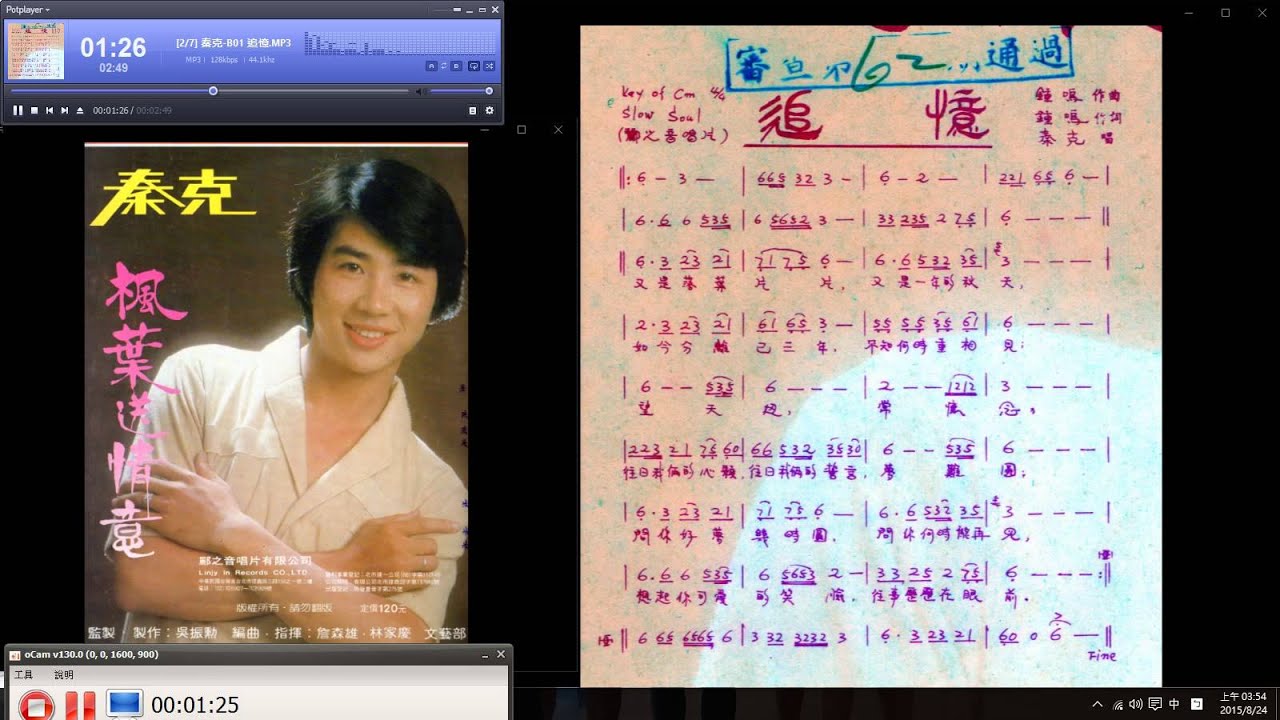 Potplayer
01:26
02:49
[2/7] 秦克-B01 追憶.MP3
MP3 128kbps 44.1khz
00:01:26 / 00:02:49
秦克
楓葉送情意
酈之音唱片有限公司
Linjy In Records CO.,LTD
版權所有·請勿翻版
定價120元
監製·製作:吳振勳 編曲·指揮:詹森雄·林家慶 文藝部
oCam v130.0 (0, 0, 1600, 900)
工具 說明
00:01:25
通過
Key of Cm 4/4
Slow Soul
(酈之音唱片)
追憶
鍾鳴 作曲
鍾鳴 作詞
秦克 唱
‖: 6 - 3 - | 665 32 3 - | 6 - 2 - | 221 65 6 - |
| 6· 6 6 535 | 6 5652 3 - | 33 235 2 75 | 6 - - - ‖
‖ 6· 3 23 21 | 71 75 6 - | 6· 6 532 35 | 3 - - - |
又是落葉片片, 又是一年的秋天,
| 2· 3 23 21 | 61 65 3 - | 55 55 35 61 | 6 - - - |
如今分離已三年, 不知何時重相見;
| 6 - - 535 | 6 - - - | 2 - - 1212 | 3 - - - |
望天邊, 常懷念,
| 223 21 75 60 | 66 532 35 30 | 6 - - 535 | 6 - - - |
往日我倆的心願, 往日我倆的誓言, 夢難圓;
| 6· 3 23 21 | 71 75 6 - | 6· 6 532 35 | 3 - - - |
問你好夢幾時圓, 問你何時能再見,
| 6· 6 6 535 | 6 5653 2 - | 33 25 2 75 | 6 - - - :‖
想起你可愛的笑臉, 往事歷歷在眼前.
‖ 6 65 6565 6 | 3 32 3232 3 | 6· 3 23 21 | 60 0 6 - ‖
Fine
中
上午 03:54
2015/8/24